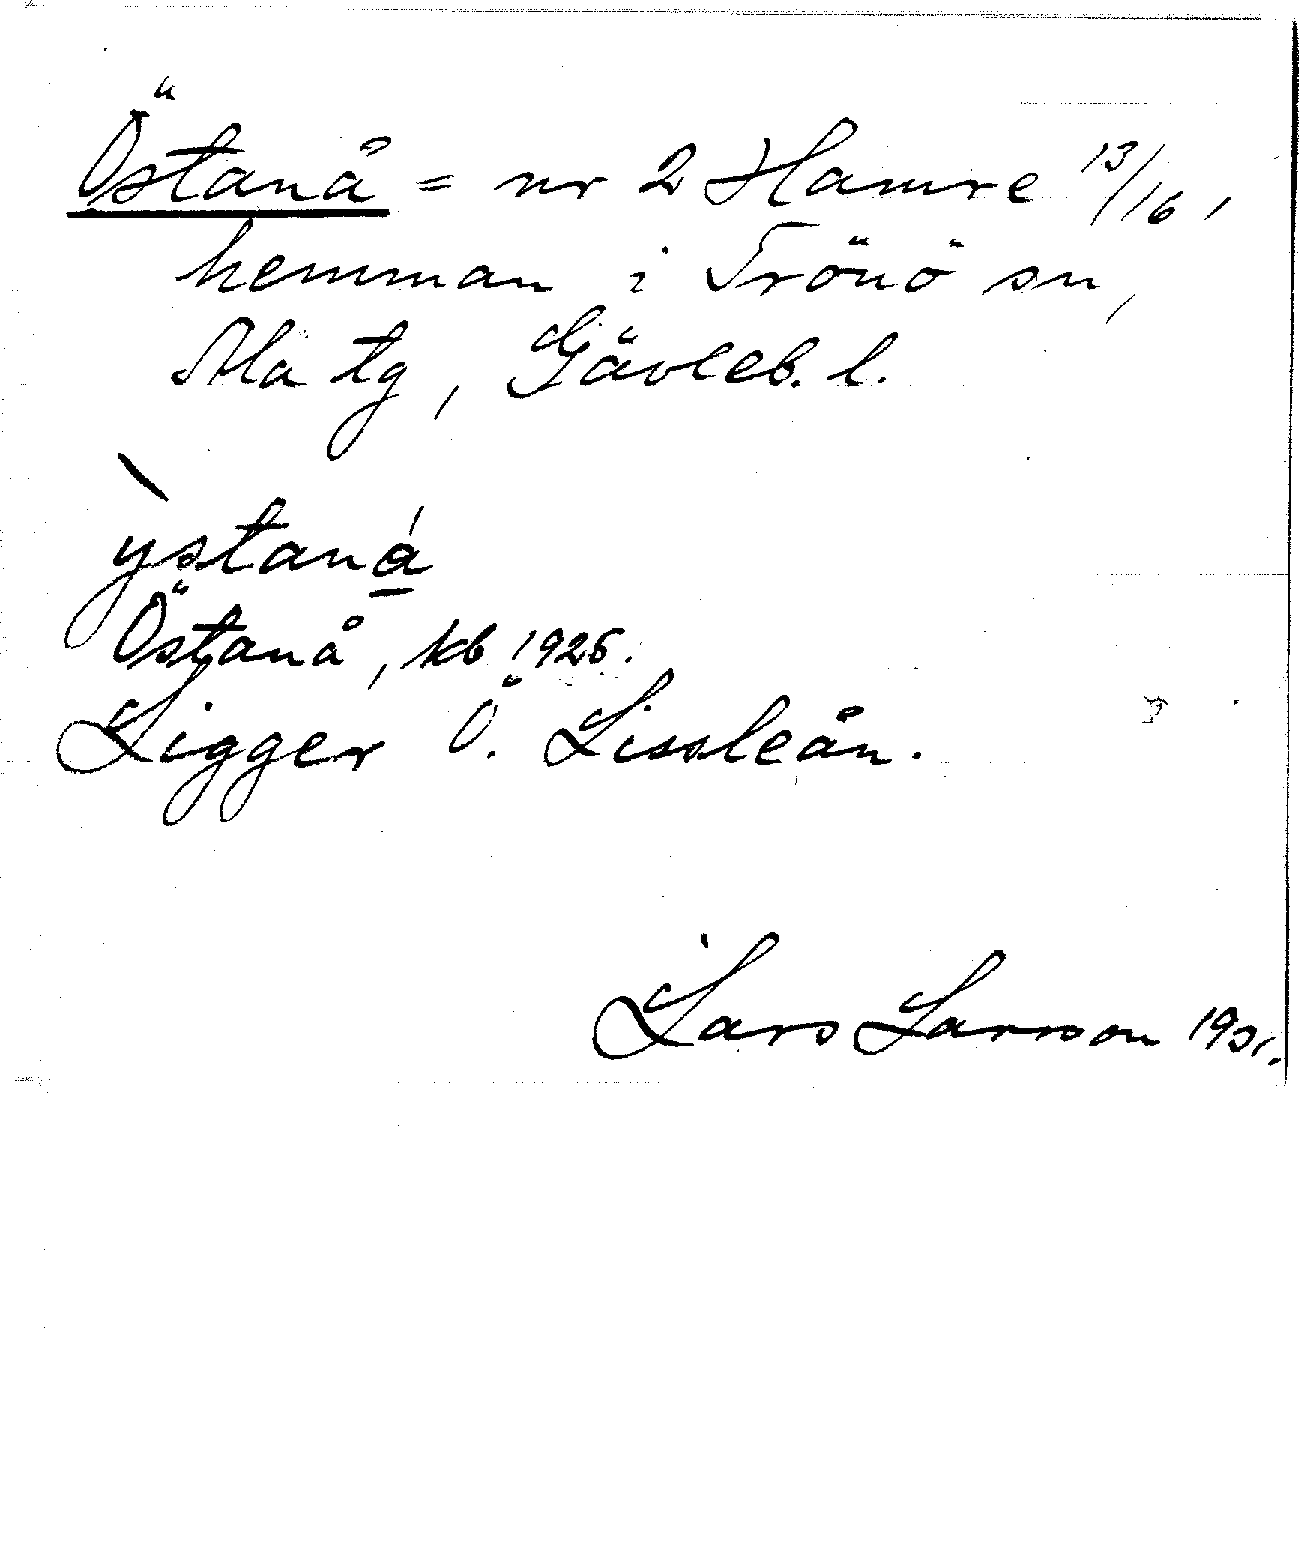 Östanå = nr 2 Hamre 13/16,
hemman i Trönö sn,
Ala tg, Gävleb. l.
ỳstaná
Östanå, kb 1925.
Ligger Ö. Lissleån.
Lars Larsson